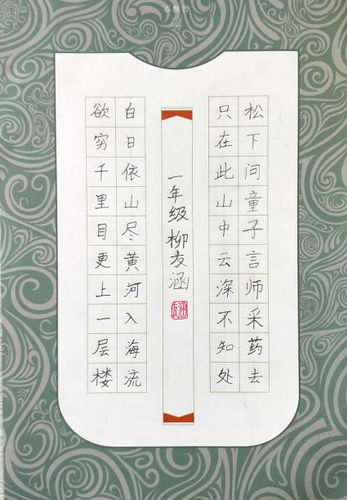 松下问童子言师采药去
只在此山中云深不知处
一年级柳友涵
白日依山尽黄河入海流
欲穷千里目更上一层楼